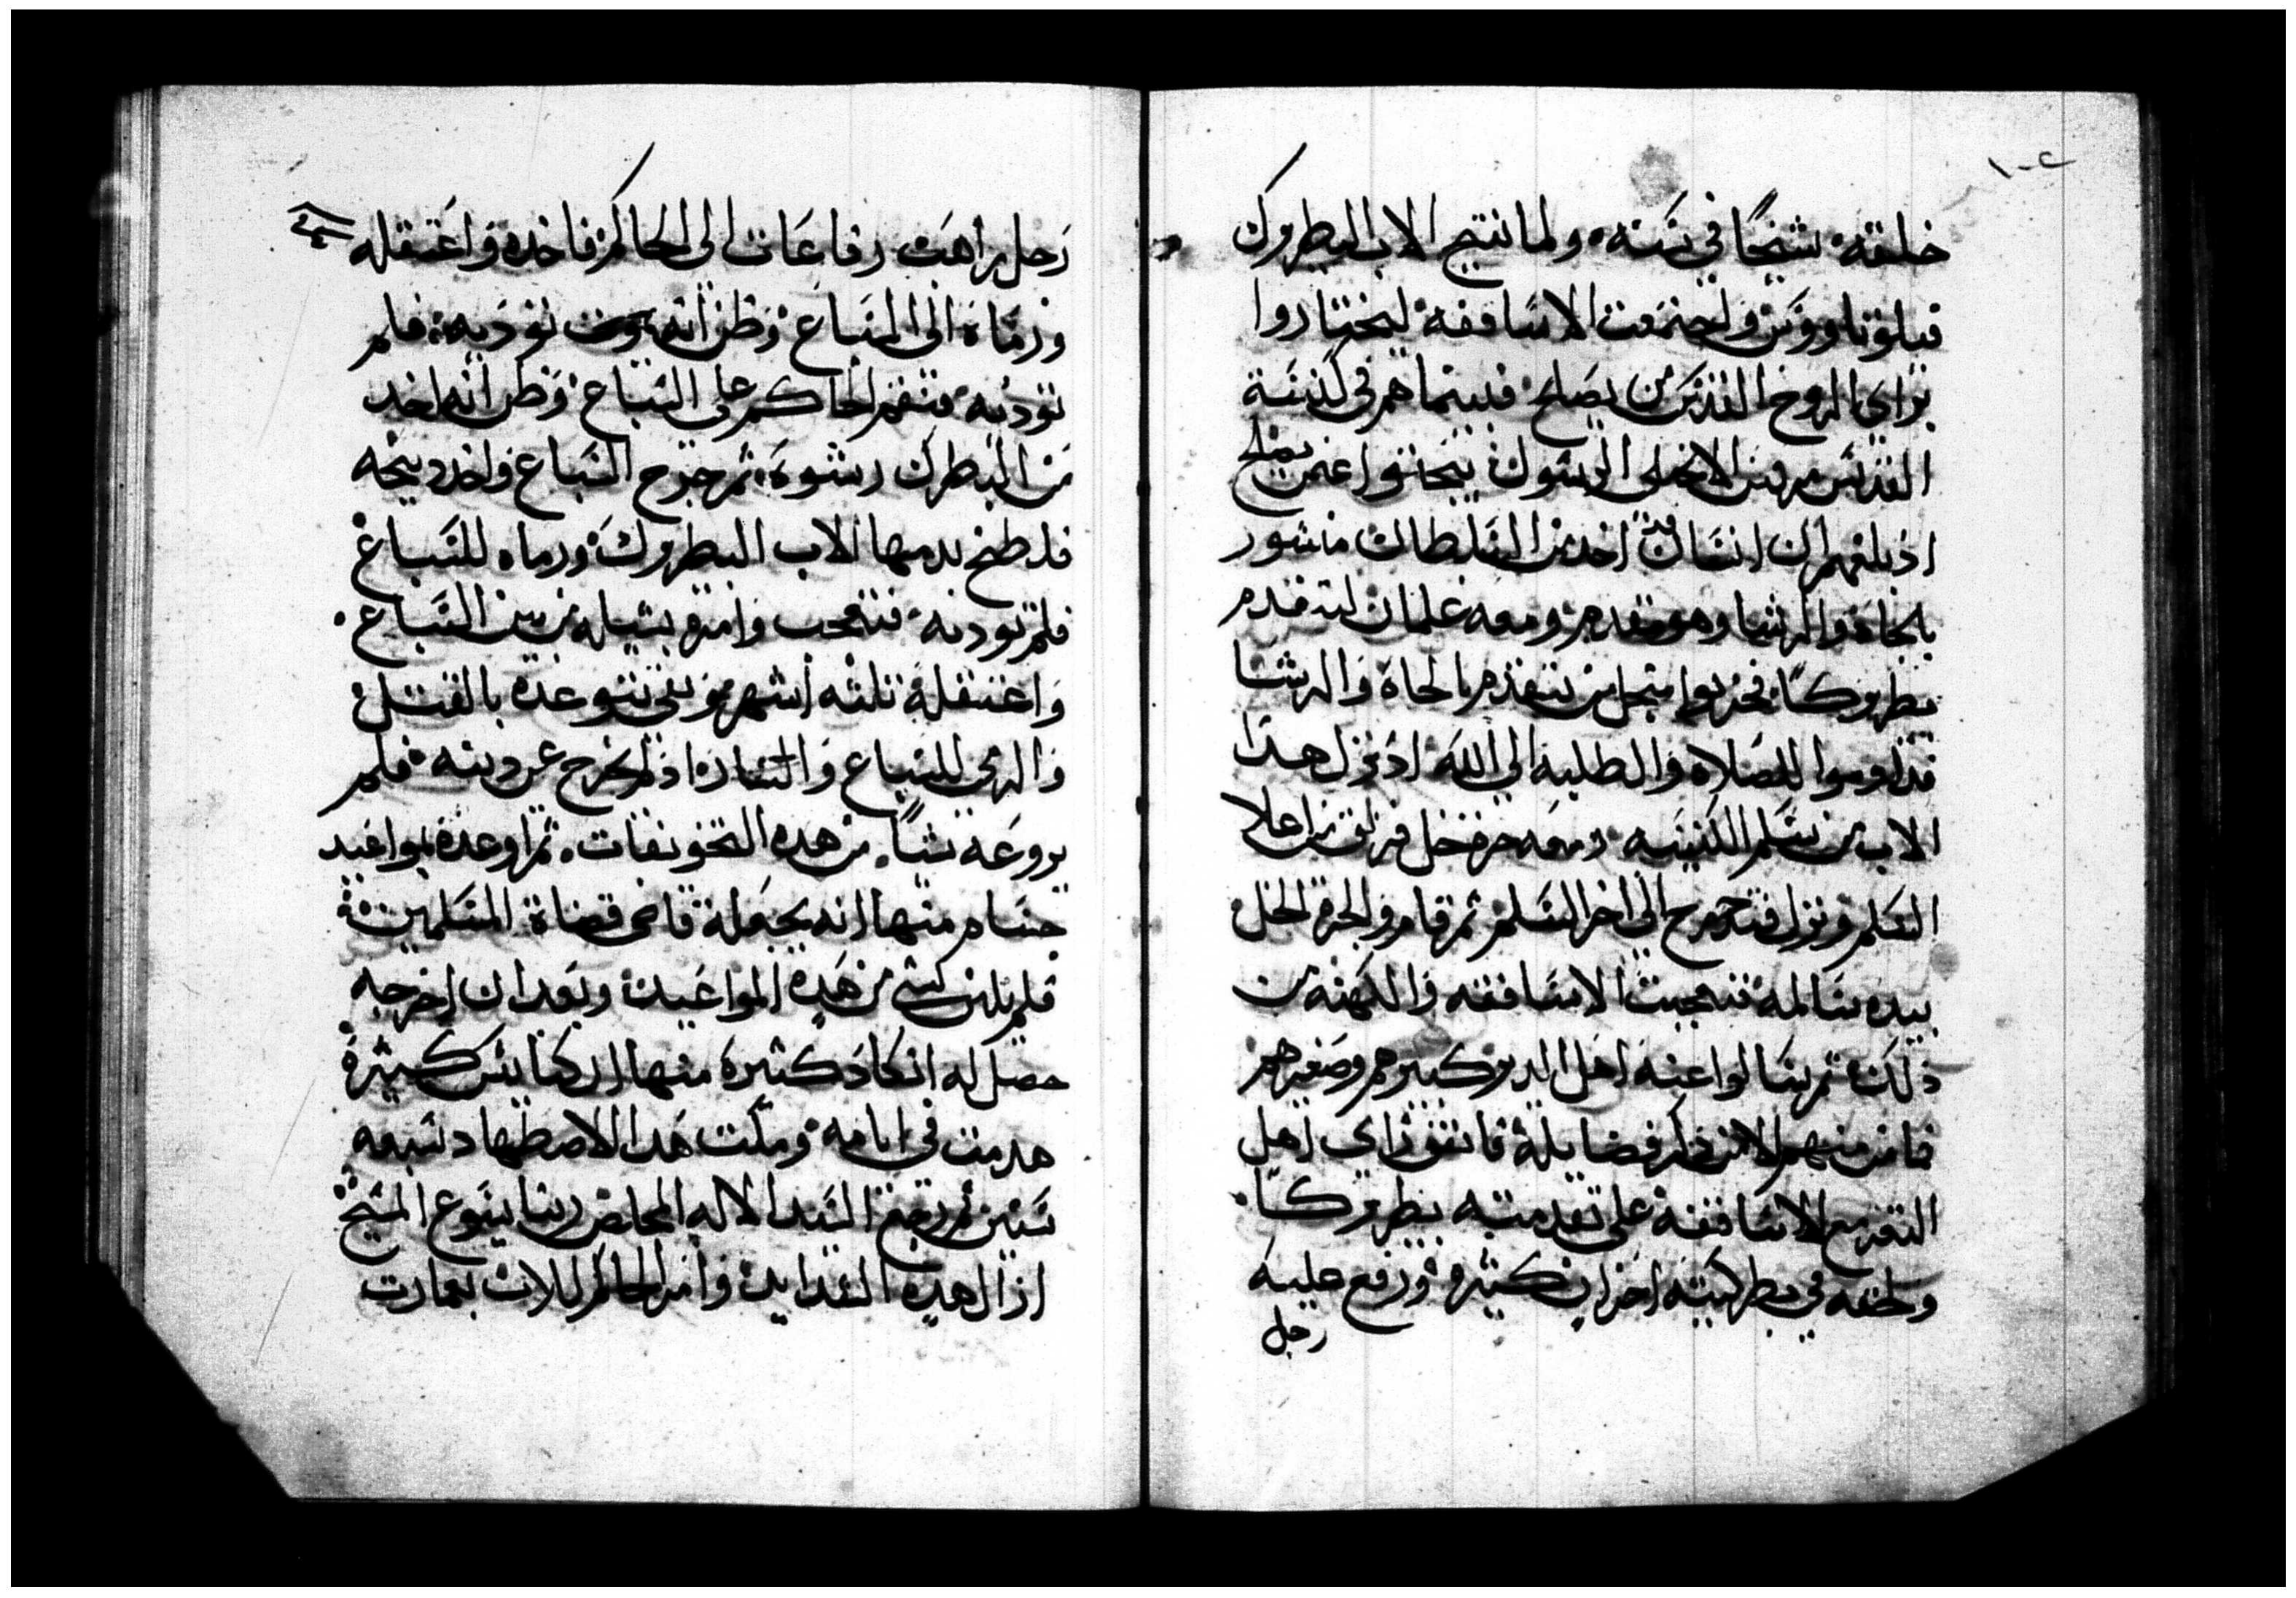 ١٠٢
خليقته شيخًا في سنه، ولما تنيح الاب البطروك
فيلوتاووس واجتمعت الاساقفة ليختاروا
براي الروح القدس من يصلح فبينما هم في كنيسة
القديس مرقس الانجيلي الرسول يبحثوا عمن يصلح
اذ بلغهم ان انسان اخد من السلطان منشور
بالجاه والرشا وهو متقدم ومعه غلمان ليتقدم
بطروكًا فحزنوا من اجل من يتقدم بالجاه والرشا
فداوموا الصلاه والطلبه الي الله اذ نزل هدا
الاب من سلم الكنيسه ومعه جرة خل فزلق من اعلا
السلم ونزل يتدحرج الي اخر السلم ثم قام والجرة الخل
بيده سالمه فتعجبت الاساقفه والكهنه من
ذلك ثم سالوا عنه اهل الدير كبيرهم وصغيرهم
فما من منهم الا من ذكر فضايله فاتفق راي اهل
التغر مع الاساقفه علي تقدمته بطروكًا
ولحقه في بطركيته احزان كثيره ورفع عليه
رجل
رجل راهب رفاعات الى الحاكم فاخده واعتقله
ورماه الى السباع وظن انه سوف توديه فلم
توديه فنقم الحاكم على السباع وظن انه اخد
من البطرك رشوه ثم خرج السباع واخد ديحه
فلطخ بدمها الاب البطروك ورماه للسباع
فلم توديه فتعجب وامر بشيله من بين السباع
واعتقله تلته اشهر وبقي يتوعده بالقتل
والرمي للسباع والنار اذ لم يخرج عن دينه فلم
يروعه شيًا من هده التخويفات، ثم اوعده بمواعيد
جسام منها انه يجعله قاضي قضاة المسلمين
فلم يلين لشي من هده المواعيد وبعد ان اخرجه
حصل له انكاد كثيره منها ان كنايس كثيرة
هدمت في ايامه ومكت هدا الاضطهاد تسعه
سنين ثم رجع السيد الاله المخلص ربنا يسوع المسيح
ازال هده الشدايد وامر الحاكم للاب بعمارت